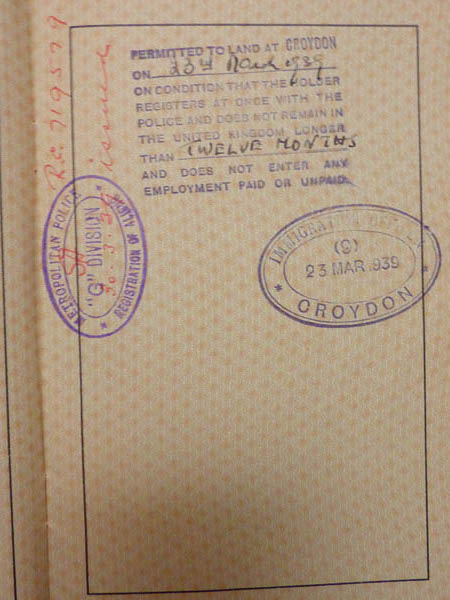 PERMITTED TO LAND AT CROYDON
ON 23rd March 1939
ON CONDITION THAT THE HOLDER
REGISTERS AT ONCE WITH THE
POLICE AND DOES NOT REMAIN IN
THE UNITED KINGDOM LONGER
THAN TWELVE MONTHS
AND DOES NOT ENTER ANY
EMPLOYMENT PAID OR UNPAID.
R.C. 719579
issued
METROPOLITAN POLICE
"G" DIVISION
30.3.39
REGISTRATION OF ALIENS
IMMIGRATION OFFICER
(9)
23 MAR 1939
* CROYDON *